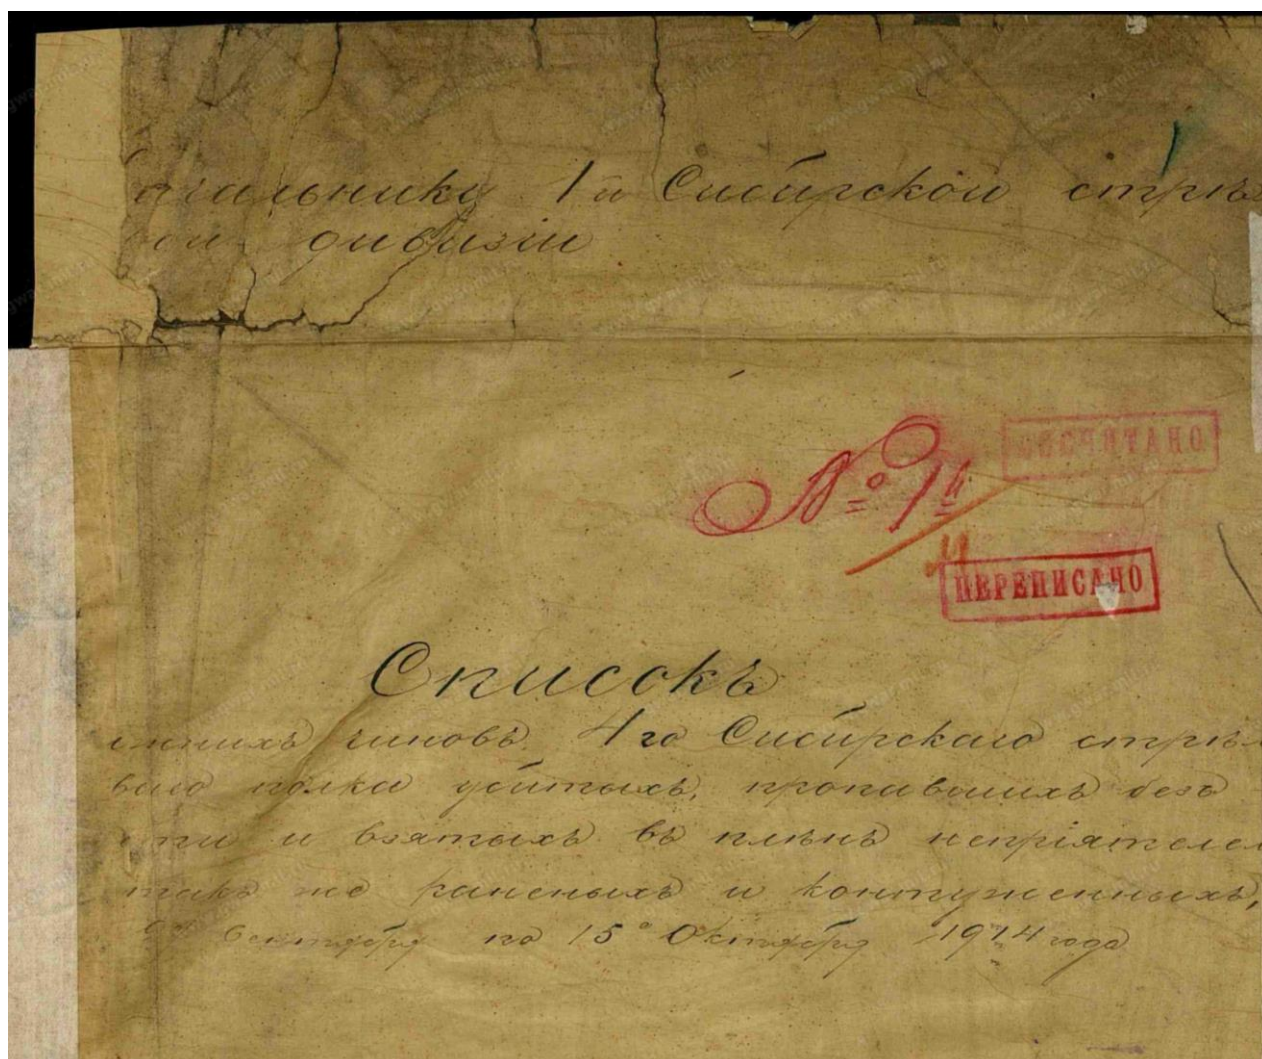 Начальнику 1й Сибирской стрѣл
вой дивизіи
ПОСЧИТАНО
№ 1й
11
ПЕРЕПИСАНО
Списокъ
нижнихъ чиновъ 4го Сибирскаго стрѣл
ваго полка убитыхъ, пропавшихъ безъ
сти и взятыхъ въ плѣнъ непріятелем
такъ же раненыхъ и контуженныхъ,
Сентября по 15е Октября 1914 года